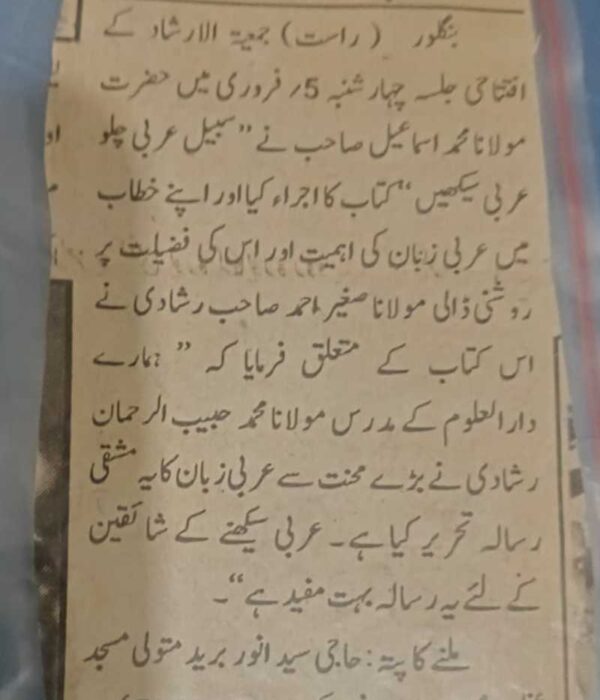 بنگلور (راست) جمعیۃ الارشاد کے
افتتاحی جلسہ چہارشنبہ 5/ فروری میں حضرت
مولانا محمد اسماعیل صاحب نے ”سبیل عربی چلو
عربی سیکھیں“ کتاب کا اجراء کیا اور اپنے خطاب
میں عربی زبان کی اہمیت اور اس کی فضیلت پر
روشنی ڈالی مولانا صغیر احمد صاحب رشادی نے
اس کتاب کے متعلق فرمایا کہ ”ہمارے
دارالعلوم کے مدرس مولانا محمد حبیب الرحمان
رشادی نے بڑے محنت سے عربی زبان کا یہ مشقی
رسالہ تحریر کیا ہے۔ عربی سیکھنے کے شائقین
کے لئے یہ رسالہ بہت مفید ہے“۔
ملنے کا پتہ: حاجی سید انور برید متولی مسجد